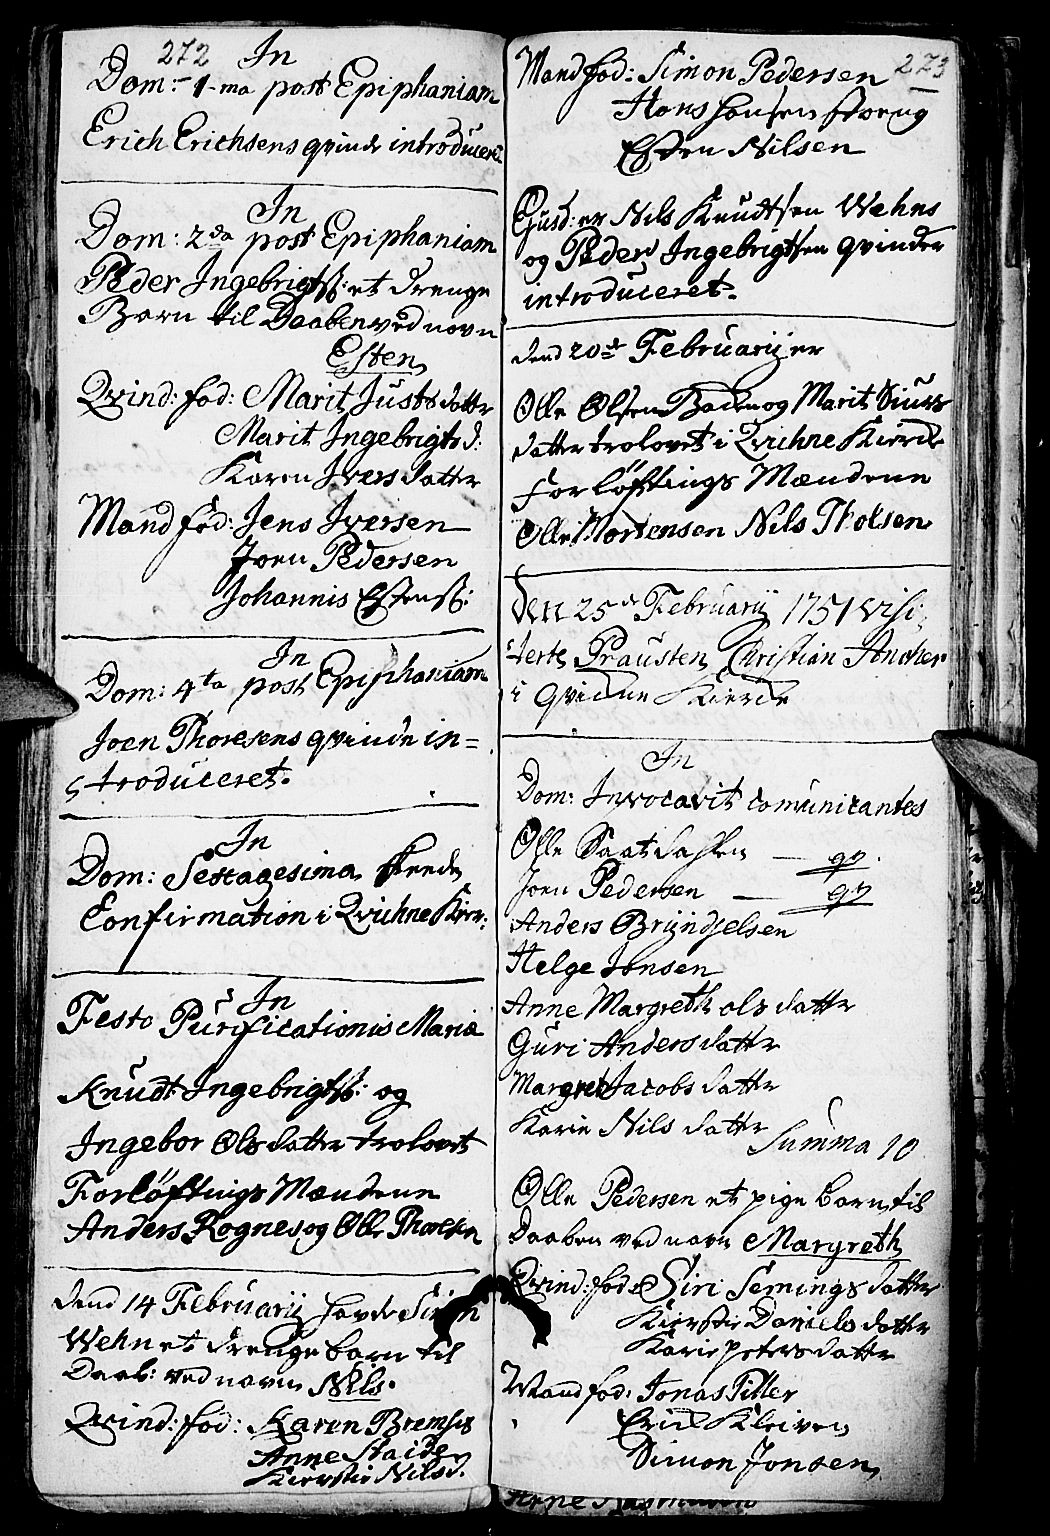 272
In
Dom: 1-ma post Epiphaniam
Erich Erichsens qvinde introduceret
In
Dom: 2da post Epiphaniam
Peder Ingebrigtß: et drenge
Barn til Daaben ved navn
Esten
Qvind: fad: Marit Justsdatter
Marit Ingebrigtsd:
Karen Iversdatter
Mand fad: Jens Iversen
Joen Pedersen
Johannis Estensß:
In
Dom: 4ta post Epiphaniam
Joen Thoresens qvinde in=
troduceret.
In
Dom: Sexagesima skeede
Confirmation i Qvichne Kirk:
In
Festo Purificationis Mariæ
Knudt Ingebrigtß: og
Ingebor Olsdatter trolovet
Forløftnigs Mændene
Anders Rognes og Olle Thoresen
Dend 14 Februarij havde Simen
Wehn et drenge barn til
Daab: ved navn Nils.
Qvind: fad: Karen Bremses
Anne Staide
Kierstie Nilsd.
273
Mand fad: Simon Pedersen
Hans Hansen
Esten Nilsen
Ejusd: er Nils Knudtsen Wehns
og Peder Ingebrigtsen qvinder
introduceret.
dend 20de Februarij er
Olle Olsen Baden og Marit Siurs
datter trolovet i Qvichne Kierke
Forløftnings Mændene
Olle Mortensen Nils Tholsen
Den 25de Februarij 1751 visi-
terte Prousten Christian Ancher
i Qvichne Kierke
In
Dom: Invocavit comunicantes
Olle Saatdahlen — qv.
Joen Pedersen — qv
Anders Bryndjelsen
Helge Jonsen
Anne Margreth olsdatter
Guri Andersdatter
Margret Jacobsdatter
Karie Nilsdatter
Summa 10
Olle Pedersen et pige barn til
Daaben ved navn Margreth
Qvind: fad: Siri Semingsdatter
Kierstie Danielsdatter
Karie petersdatter
Mand fad: Jonas Piller
Erich Kleiven
Simon Jonsen
Arne Rasmusen